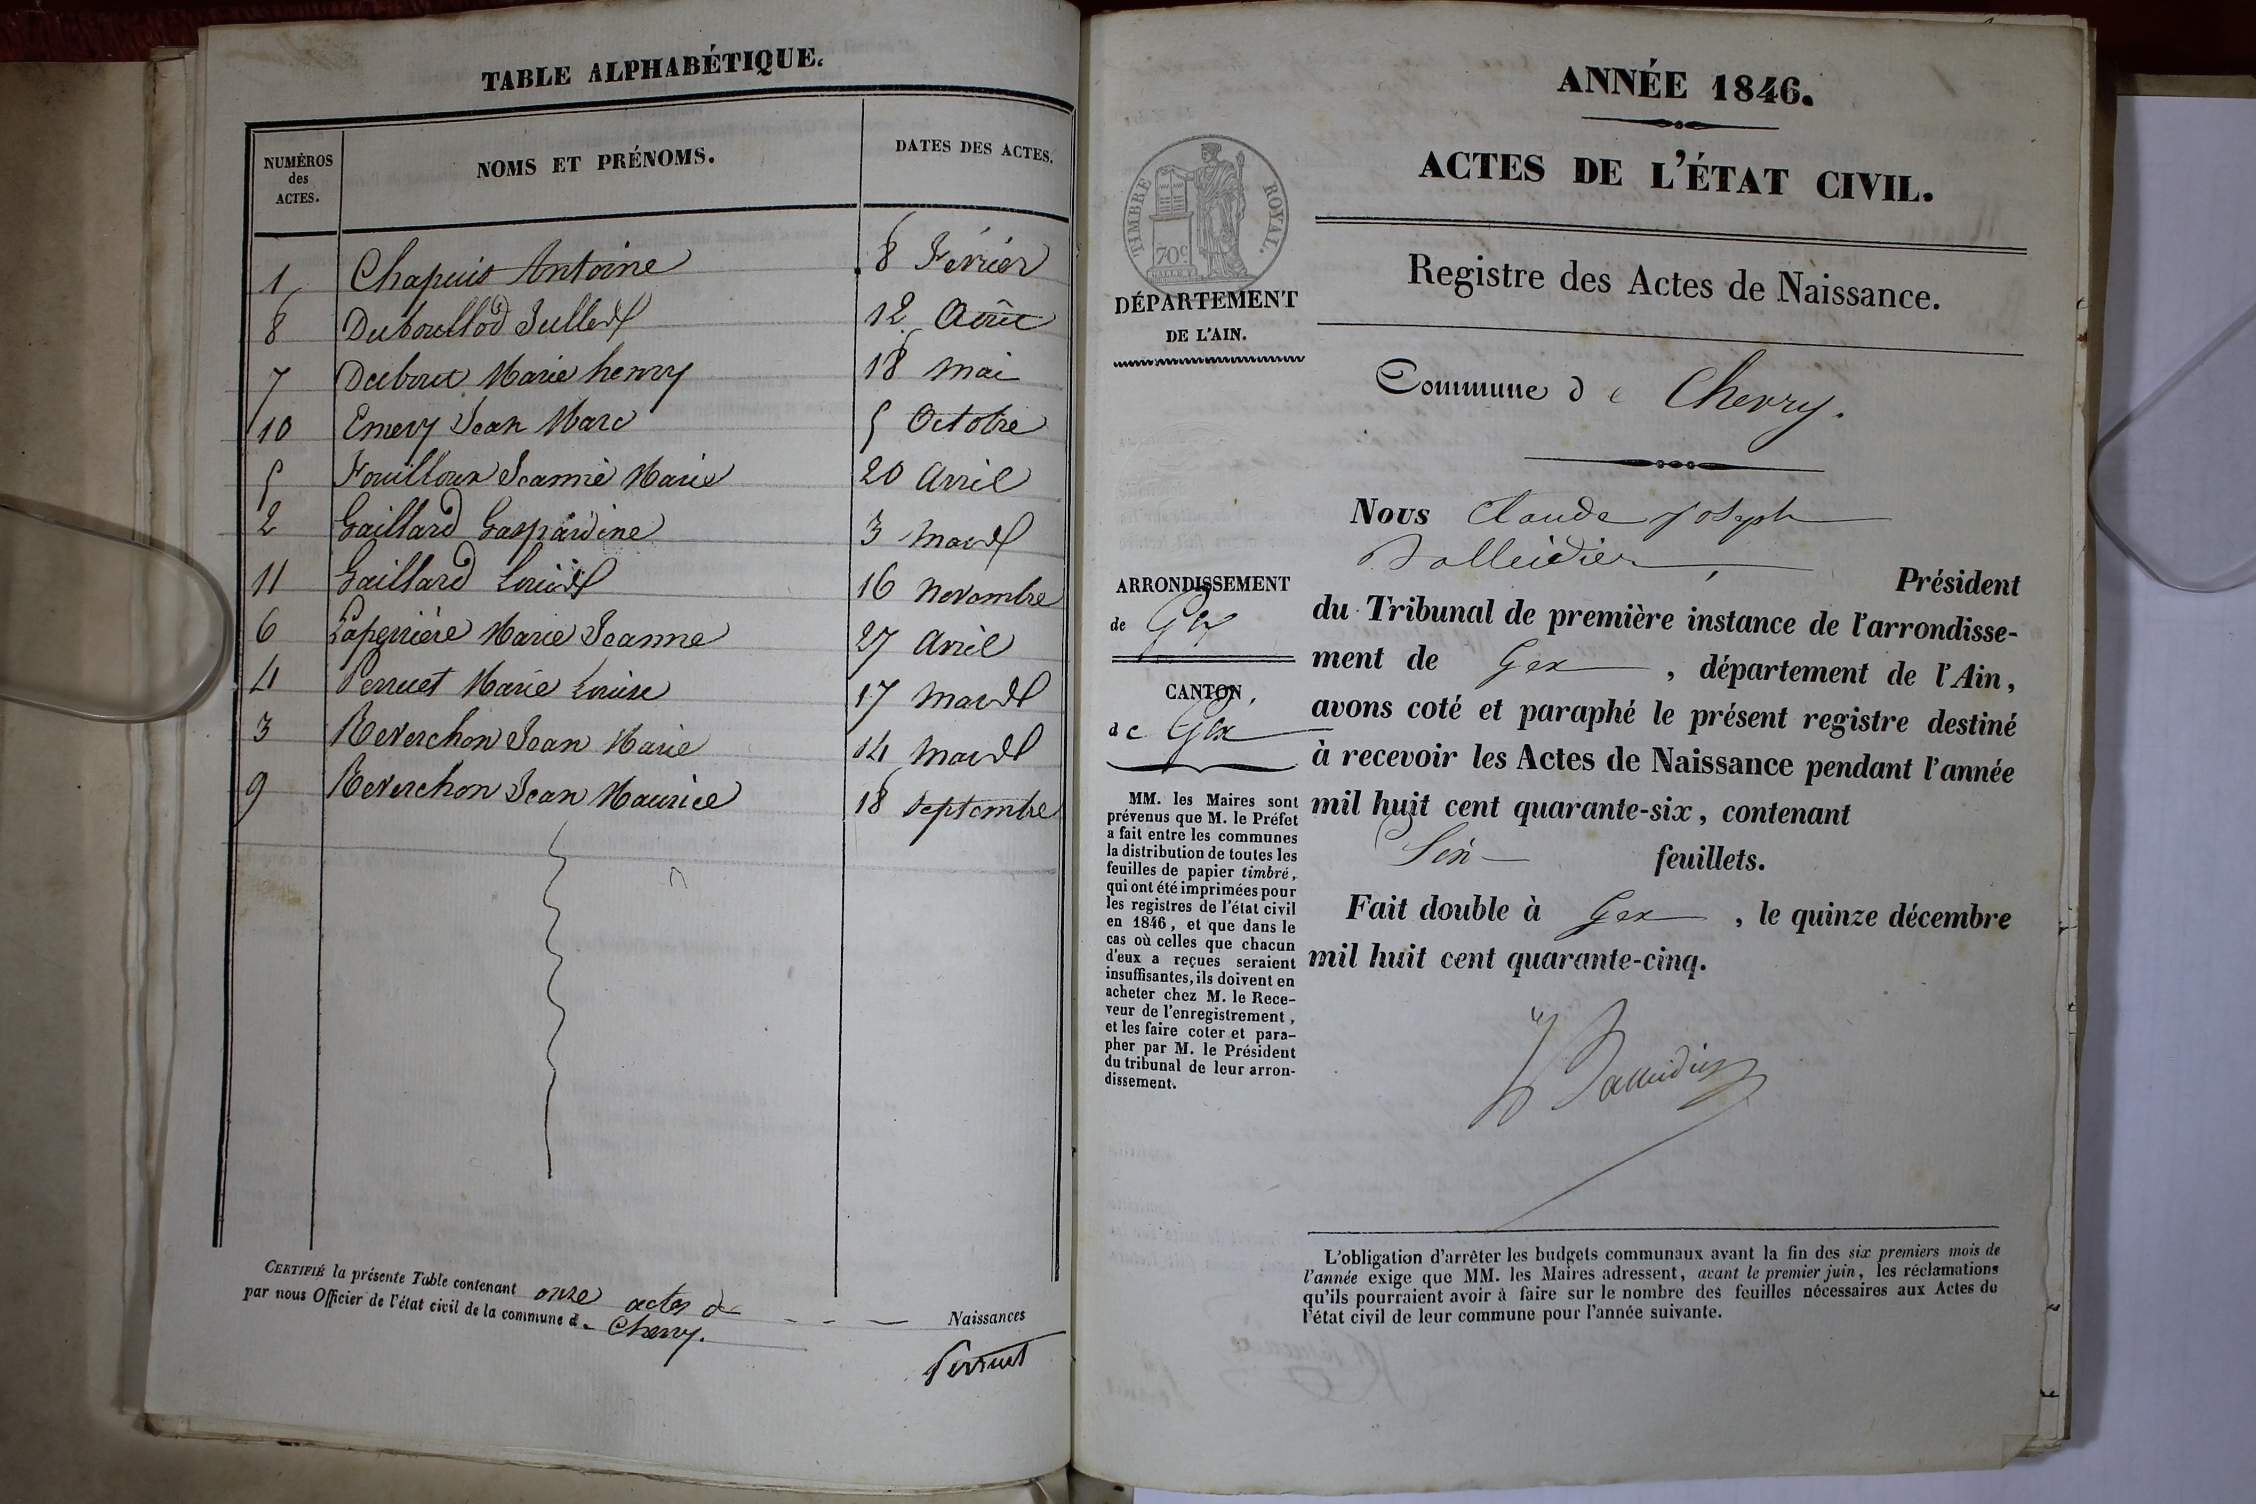 TABLE ALPHABÉTIQUE.
NUMÉROS des ACTES. NOMS ET PRÉNOMS. DATES DES ACTES.
1 Chapuis Antoine 8 Février
8 Duboullod 12 Août
7 Dubout Marie henry 18 mai
10 Emery Jean Marc 5 Octobre
5 Fouilloux Jeanne Marie 20 Avril
2 Gaillard Gaspardine 3 mars
11 Gaillard Louis 16 Novembre
6 Laperrière Marie Jeanne 27 Avril
4 Perruet Marie Louise 17 mars
3 Reverchon Jean Marie 14 mars
9 Reverchon Jean Maurice 18 Septembre
CERTIFIÉ la présente Table contenant onze actes de Naissances
par nous Officier de l'état civil de la commune de Chevry.
Perruet
ANNÉE 1846.
ACTES DE L'ÉTAT CIVIL.
TIMBRE ROYAL.
70c
DÉPARTEMENT
DE L'AIN.
Registre des Actes de Naissance.
Commune de Chevry.
ARRONDISSEMENT
de Gex
CANTON
de Gex
MM. les Maires sont
prévenus que M. le Préfet
a fait entre les communes
la distribution de toutes les
feuilles de papier timbré,
qui ont été imprimées pour
les registres de l'état civil
en 1846, et que dans le
cas où celles que chacun
d'eux a reçues seraient
insuffisantes, ils doivent en
acheter chez M. le Rece-
veur de l'enregistrement,
et les faire coter et para-
pher par M. le Président
du tribunal de leur arron-
dissement.
Nous Claude Joseph
Président
du Tribunal de première instance de l'arrondisse-
ment de Gex, département de l'Ain,
avons coté et paraphé le présent registre destiné
à recevoir les Actes de Naissance pendant l'année
mil huit cent quarante-six, contenant
Six feuillets.
Fait double à Gex, le quinze décembre
mil huit cent quarante-cinq.
L'obligation d'arrêter les budgets communaux avant la fin des six premiers mois de
l'année exige que MM. les Maires adressent, avant le premier juin, les réclamations
qu'ils pourraient avoir à faire sur le nombre des feuilles nécessaires aux Actes de
l'état civil de leur commune pour l'année suivante.